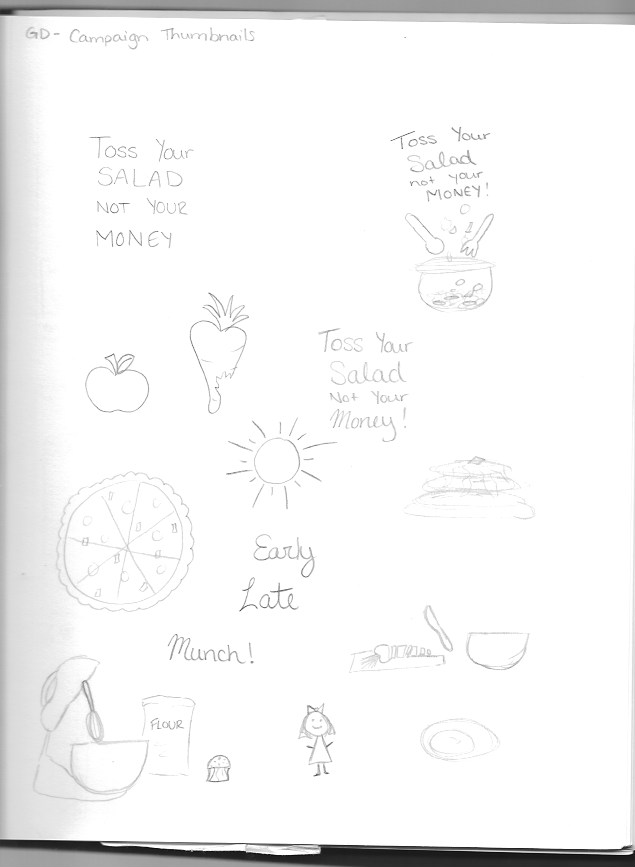 GD- Campaign Thumbnails
Toss Your
SALAD
NOT YOUR
MONEY
Toss Your
Salad
not your
MONEY!
Toss Your
Salad
Not Your
Money!
Early
Late
Munch!
FLOUR